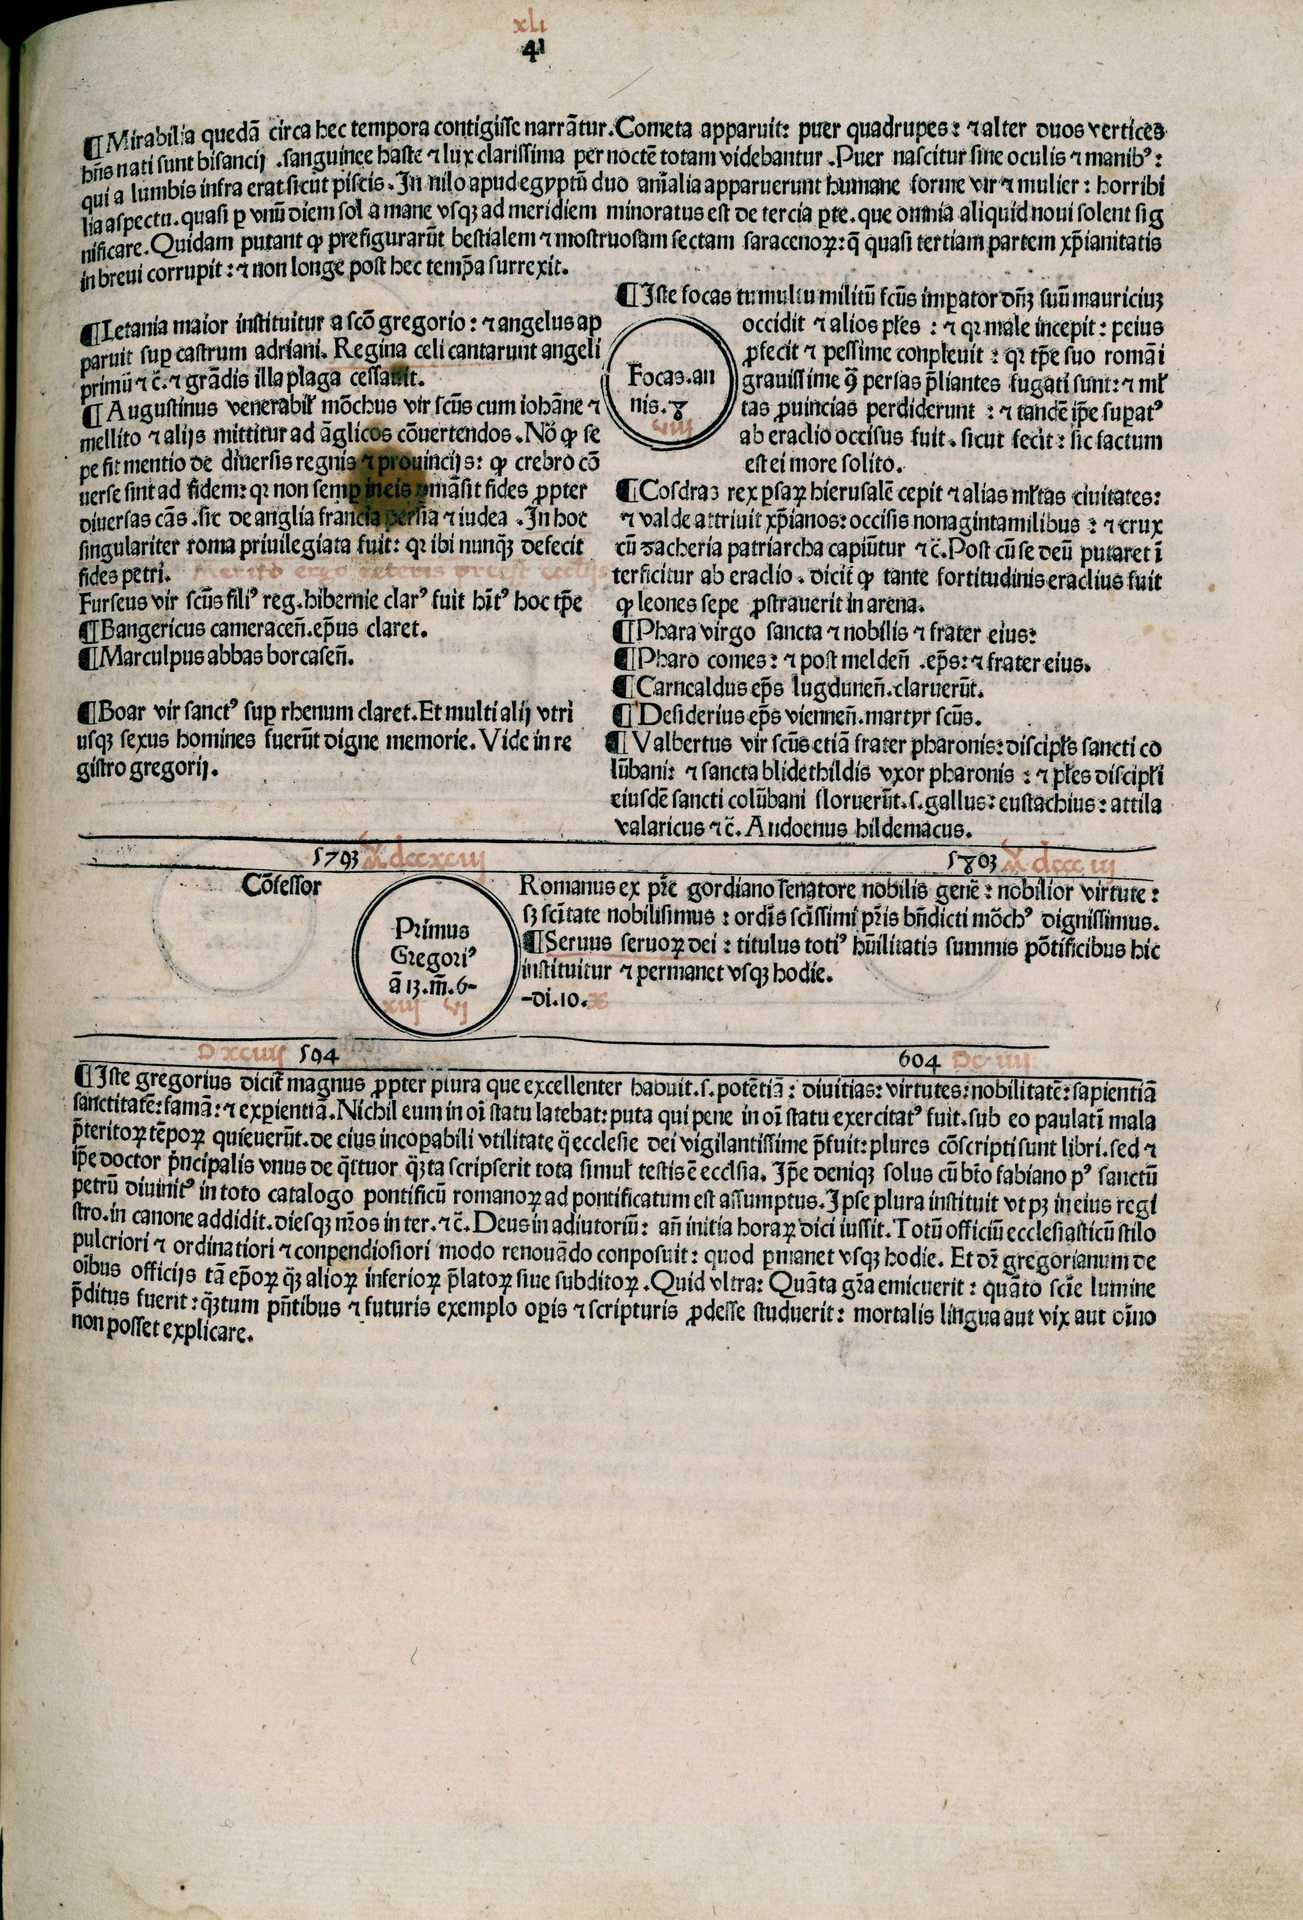 xli
41
¶Mirabilia quedā circa hec tempora contigisse narrātur. Cometa apparuit: puer quadrupes: ⁊ alter duos vertices
hñs nati sunt bisancij .sanguinee haste ⁊ lux clarissima per noctē totam videbantur .Puer nascitur sine oculis ⁊ manibꝰ:
qui a lumbis infra erat sicut piscis. In nilo apud egyptū duo aīalia apparuerunt humane forme vir ⁊ mulier: horribi
lia aspectu. quasi ꝑ vnū diem sol a mane vsqꝫ ad meridiem minoratus est de tercia ꝑte. que omnia aliquid noui solent sig
nificare. Quidam putant ꝙ prefigurarūt bestialem ⁊ mostruosam sectam saracenoꝝ: q̄ quasi tertiam partem xp̄ianitatis
in breui corrupit: ⁊ non longe post hec temp̄a surrexit.
¶Letania maior instituitur a scō gregorio: ⁊ angelus ap
paruit suꝑ castrum adriani. Regina celi cantarunt angeli
primū ⁊ c̄. ⁊ grādis illa plaga cessauit.
¶Augustinus venerabił mōchus vir scūs cum iohāne ⁊
mellito ⁊ alijs mittitur ad āglicos cōuertendos. Nō ꝙ se
pe fit mentio de diuersis regnis ⁊ prouincijs: ꝙ crebro cō
uerse sint ad fidem: qꝛ non semꝑ in eis ꝑmāsit fides ꝓpter
diuersas cās .sic de anglia francia persia ⁊ iudea .In hoc
singulariter roma priuilegiata fuit: qꝛ ibi nunqꝫ̄ defecit
fides petri.
Furseus vir scūs filiꝰ reg. hibernie clarꝰ fuit hītꝰ hoc tp̄e
¶Bangericus cameraceñ. ep̄us claret.
¶Marculpus abbas borcaseñ.
¶Boar vir sanctꝰ suꝑ rhenum claret. Et multi alij vtri
usqꝫ sexus homines fuerūt digne memorie. Vide in re
gistro gregorij.
¶Iste focas tumultu militū fcūs imꝑator dn̄ꝫ suū mauriciuꝫ
occidit ⁊ alios płes : ⁊ qꝛ male incepit: peius
ꝓfecit ⁊ pessime conpleuit : qꝛ tꝑe suo romāi
grauissime ꝯ persas p̄liantes fugati sunt: ⁊ mł
tas ꝓuincias perdiderunt : ⁊ tandē ip̄e suꝑatꝰ
ab eraclio occisus fuit. sicut fecit: sic factum
est ei more solito.
Focas. an
nis. 8
viij
¶Cosdraꝫ rex ꝑsaꝝ hierusalē cepit ⁊ alias młtas ciuitates:
⁊ valde attriuit xp̄ianos: occisis nonagintamilibus : ⁊ crux
cū zacheria patriarcha capiūtur ⁊ c̄. Post cū se deū putaret ī
terficitur ab eraclio . dicit̄ ꝙ tante fortitudinis eraclius fuit
ꝙ leones sepe ꝓstrauerit in arena.
¶Phara virgo sancta ⁊ nobilis ⁊ frater eius:
¶Pharo comes: ⁊ post meldeñ .ep̄s: ⁊ frater eius.
¶Carnealdus ep̄s lugduneñ. claruerūt.
¶Desiderius ep̄s vienneñ. martyr scūs.
¶Valbertus vir scūs etiā frater pharonis: discipłs sancti co
lūbani: ⁊ sancta blidethildis vxor pharonis : ⁊ płes discipłi
eiusdē sancti colūbani floruerūt. s. gallus: eustachius: attila
valaricus ⁊ c̄. Audoenus hildemacus.
5793 dccxciij 5803 dccc iij
Cōfessor
Primus
Gregoriꝰ
ā 13. m̄. 6-
xiij vj
Romanus ex pr̄e gordiano senatore nobilis genē: nobilior virtute:
sꝫ scītate nobilisimus: ordīs scīssimi pr̄is bn̄dicti mōchꝰ dignissimus.
¶Seruus seruoꝝ dei : titulus totiꝰ hūilitatis summis pōtificibus hic
instituitur ⁊ permanet vsqꝫ hodie.
-di. 10. x
D xciiij 594 604 DC iiij
¶Iste gregorius dicit̄ magnus ꝓpter plura que excellenter habuit. s. potētiā: diuitias: virtutes: nobilitatē: sapientiā
sanctitatē: famā: ⁊ exꝑientiā. Nichil eum in oī statu latebat: puta qui pene in oī statu exercitatꝰ fuit. sub eo paulatī mala
p̄teritoꝝ tēpoꝝ quieuerūt. de eius incoꝑabili vtilitate q̄ ecclesie dei vigilantissime p̄fuit: plures cōscripti sunt libri. sed ⁊
ip̄e doctor p̄ncipalis vnus de q̄ttuor qꝫ̄ta scripserit tota simuł testis ē ecclsia. Ip̄e deniqꝫ solus cū bt̄o fabiano pꝰ sanctū
petrū diuinitꝰ in toto catalogo pontificū romanoꝝ ad pontificatum est assumptus. Ipse plura instituit vt pꝫ in eius regi
stro. in canone addidit. diesqꝫ nr̄os in ter. ⁊ c̄. Deus in adiutoriū: añ initia horaꝝ dici iussit. Totū officiū ecclesiasticū stilo
pulcriori ⁊ ordinatiori ⁊ conpendiosiori modo renouādo conposuit: quod ꝑmanet vsqꝫ hodie. Et dr̄ gregorianum de
oībus officijs tā ep̄oꝝ qꝫ̄ alioꝝ inferioꝝ p̄latoꝝ siue subditoꝝ. Quid vltra: Quāta gr̄a emicuerit: quāto scīe lumine
p̄ditus fuerit: qꝫ̄tum pn̄tibus ⁊ futuris exemplo oꝑis ⁊ scripturis ꝓdesse studuerit: mortalis lingua aut vix aut oīno
non posset explicare.